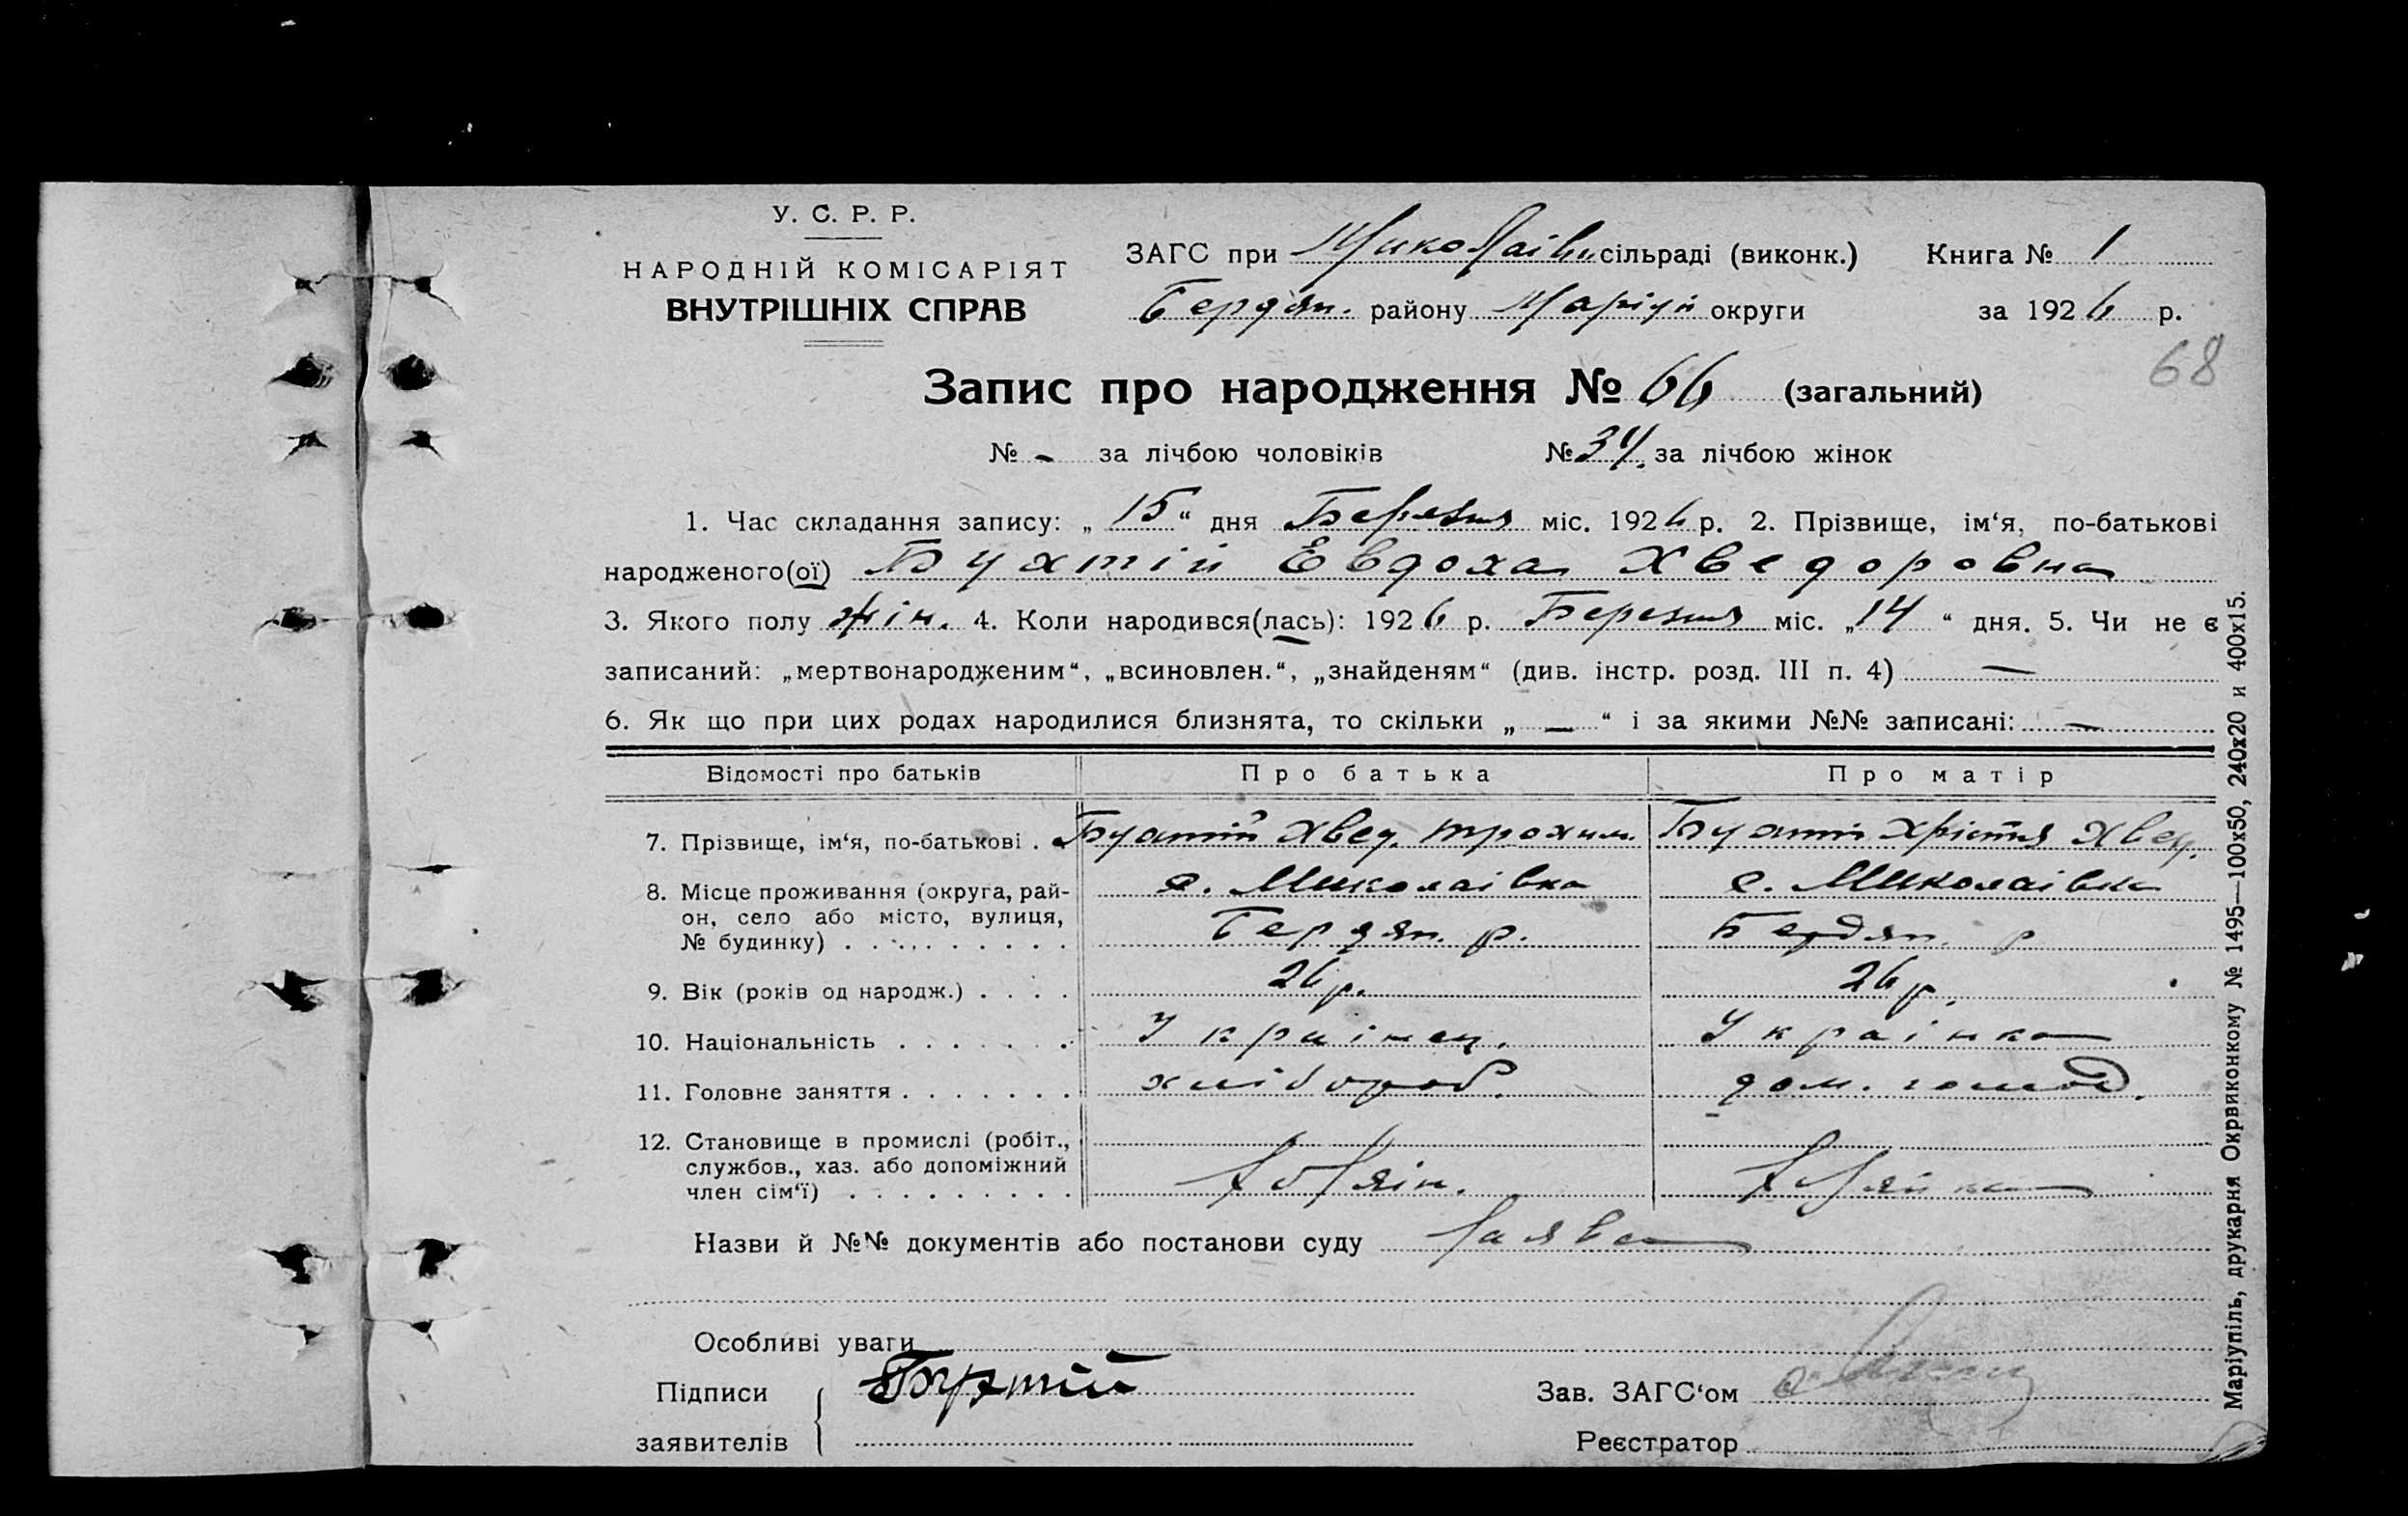 У. С. Р. Р.
НАРОДНІЙ КОМІСАРІЯТ
ВНУТРІШНІХ СПРАВ
ЗАГС при Миколаівн сільраді (виконк.) Книга № 1
Бердян. району Маріуп округи за 1926 р.
68
Запис про народження № 66 (загальний)
№ - за лічбою чоловіків № 34. за лічбою жінок
1. Час складання запису: „ 15 “ дня Березня міс. 1926 р. 2. Прізвище, ім‘я, по-батькові
народженого(ої) Бухтій Евдоха Хведоровна
3. Якого полу жін. 4. Коли народився(лась): 1926 р. Березня міс. „ 14 “ дня. 5. Чи не є
записаний: „мертвонародженим“, „всиновлен.“, „знайденям“ (див. інстр. розд. III п. 4) —
6. Як що при цих родах народилися близнята, то скільки „ — “ і за якими №№ записані: —
Відомості про батьків Про батька Про матір
7. Прізвище, ім‘я, по-батькові . Бухтій Хвед. Трохим. Бухтій Хрістя Хвед.
8. Місце проживання (округа, рай- с. Миколаівка с. Миколаівка
он, село або місто, вулиця,
№ будинку) . . . . . . . . . . Бердян. р. Бердян. р
9. Вік (років од народж.) . . . . 26 р. 26 р.
10. Національність . . . . . . . Украінец. Украінка
11. Головне заняття . . . . . . . хлібороб. дом. господ.
12. Становище в промислі (робіт.,
службов., хаз. або допоміжний
член сім‘ї) . . . . . . . . . .
Назви й №№ документів або постанови суду Заява
Особливі уваги
Підписи Бухтій Зав. ЗАГС‘ом
заявителів Реєстратор
Маріупіль, друкарня Окрвиконкому № 1495—100х50, 240х20 и 400х15.